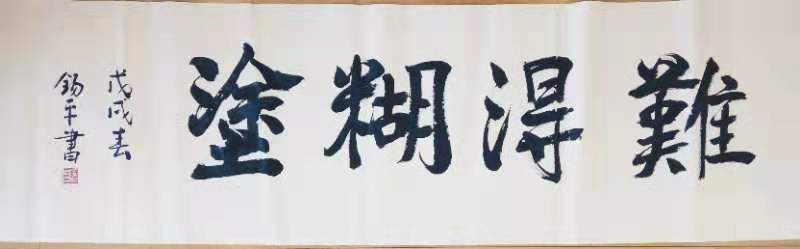 難得糊塗
戊戌春
錫平書